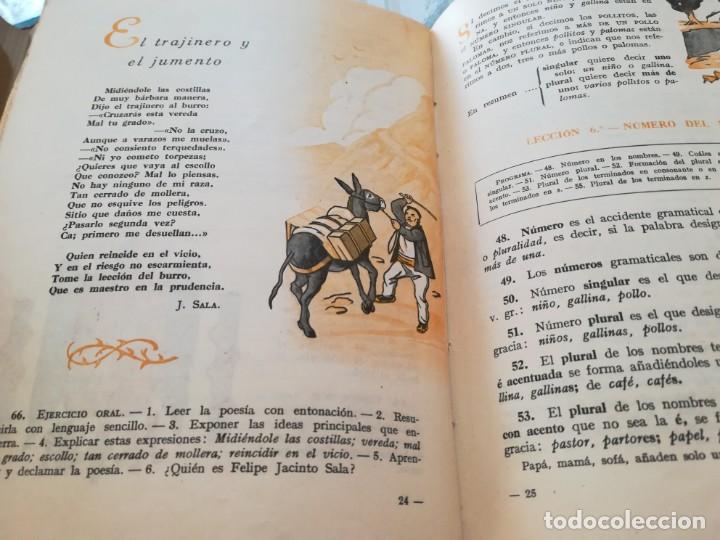 El trajinero y
el jumento
Midiéndole las costillas
De muy bárbara manera,
Dijo el trajinero al burro:
—«Cruzarás esta vereda
Mal tu grado».
—«No la cruzo,
Aunque a varazos me muelas».
—«No consiento terquedades».
—«Ni yo cometo torpezas;
¿Quieres que vaya al escollo
Que conozco? Mal lo piensas.
No hay ninguno de mi raza,
Tan cerrado de mollera,
Que no esquive los peligros.
Sitio que daños me cuesta,
¿Pasarlo segunda vez?
Ca; primero me desuellan...»
Quien reincide en el vicio,
Y en el riesgo no escarmienta,
Tome la lección del burro,
Que es maestro en la prudencia.
J. SALA.
66. EJERCICIO ORAL. — 1. Leer la poesía con entonación. — 2. Resu-
cirla con lenguaje sencillo. — 3. Exponer las ideas principales que en-
erra. — 4. Explicar estas expresiones: Midiéndole las costillas; vereda; mal
grado; escollo; tan cerrado de mollera; reincidir en el vicio. — 5. Apren-
r y declamar la poesía. — 6. ¿Quién es Felipe Jacinto Sala?
24 —
Si decimos el
rimos a UN SOLO
NA, y entonces niño y gallina
el NÚMERO SINGULAR.
En cambio, si decimos los POLLITOS, las
PALOMAS, nos referimos a MÁS DE UN POLLO
o PALOMA, y entonces pollitos y palomas están
en el NÚMERO PLURAL, o indican que nos refe-
rimos a dos, tres o más pollos o palomas.
En resumen ....
singular quiere decir uno
solo: un niño o gallina.
plural quiere decir más de
uno: varios pollitos o pa-
lomas.
LECCIÓN 6.ª — NÚMERO DEL
PROGRAMA. — 48. Número en los nombres. — 49. Cuáles
singular. — 51. Número plural. — 52. Formación del plural
acento. — 53. Plural de los terminados en consonante o en
los terminados en s. — 55. Plural de los terminados en z.
48. Número es el accidente gramatical
o pluralidad, es decir, si la palabra desig
más de una.
49. Los números gramaticales son d
50. Número singular es el que de
v. gr.: niño, gallina, pollo.
51. Número plural es el que desig
gracia: niños, gallinas, pollos.
52. El plural de los nombres te
é acentuada se forma añadiéndoles u
llina, gallinas; de café, cafés.
53. El plural de los nombres
con acento que no sea la é, se
gracia: pastor, partores; papel,
Papá, mamá, sofá, añaden solo un
— 25
todocoleccion